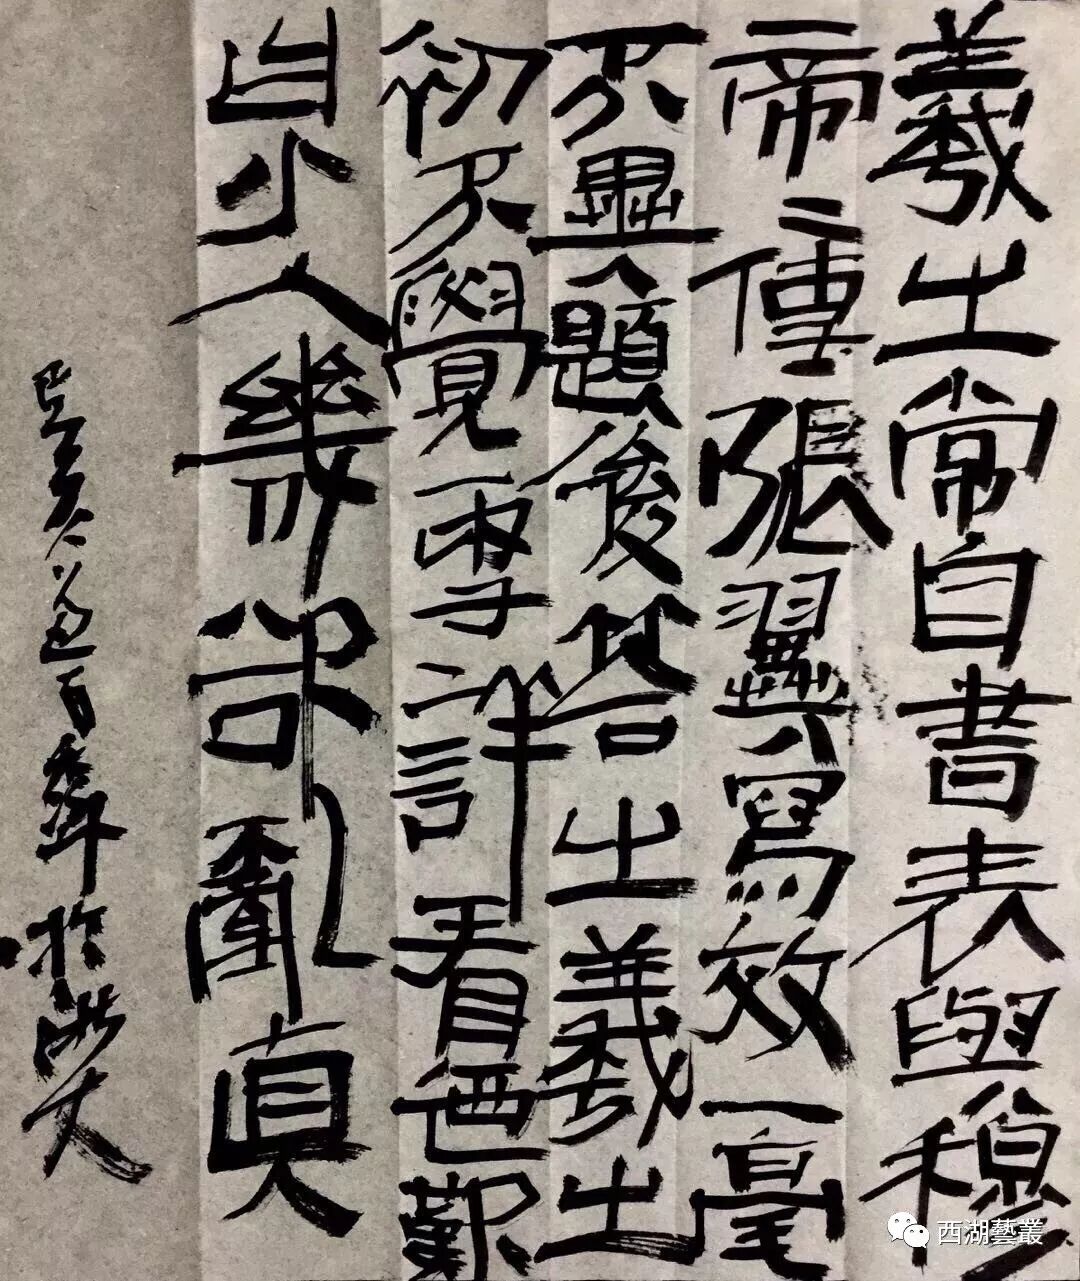 羲之常自書表與穆
帝〻傳張翼寫效一毫
不異題後答之羲之
初不覺詳看迺歎
曰小人幾欲亂真
己亥於浙大
西湖藝叢